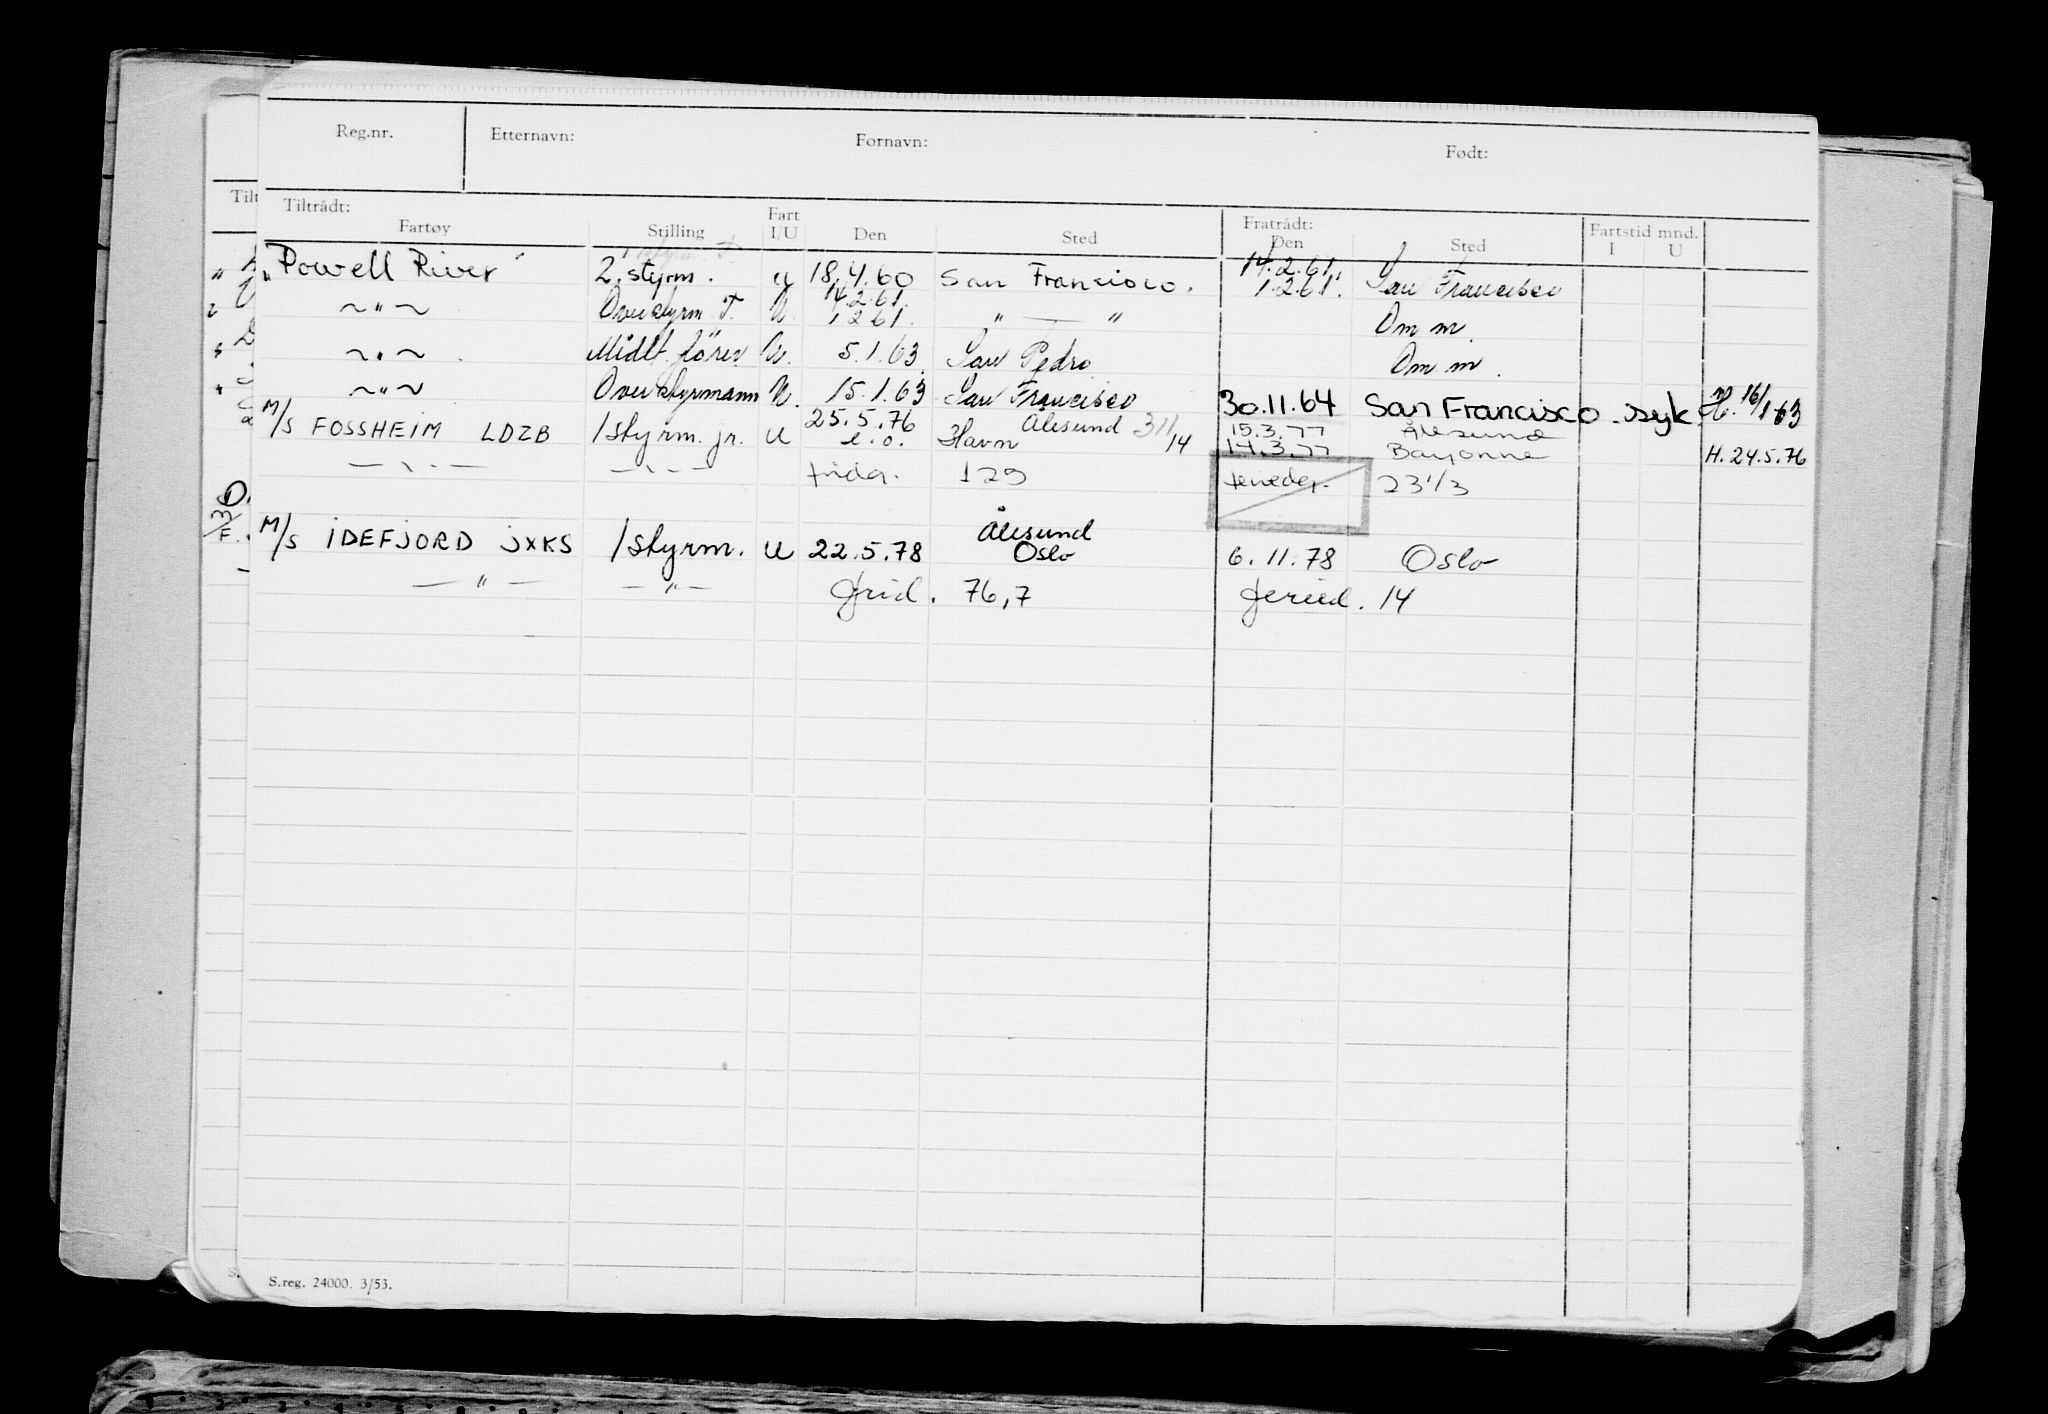 Reg.nr. Etternavn: Fornavn: Født:
Tiltrådt: Fratrådt:
Fartøy Stilling Fart I/U Den Sted Den Sted Fartstid mnd. I U
14.2.61.
"Powell River" 2. styrm. U 18.4.60 San Francisco. 1.2.61. San Francisco
14.2.61.
~ " ~ Overstyrm. T. U. 1.2.61. " — " Om m.
~ " ~ Midlt. fører U. 5.1.63 San Pedro Om m.
~ " ~ Overstyrmann U. 15.1.63 San Francisco 30.11.64 San Francisco . syk. H. 16/1-63
25.5.76 Ålesund 31/14 15.3.77 Ålesund
M/S FOSSHEIM LDZB 1 styrm. jr. U e.o. Havn 14.3.77 Bayonne H. 24.5.76
— " — — " — frida. 129 ferieda. 23 1/3
Ålesund
M/S IDEFJORD JXKS 1 styrm. U 22.5.78 Oslo 6.11.78 Oslo
— " — — " — frid. 76,7 feried. 14
S.reg. 24000. 3/53.